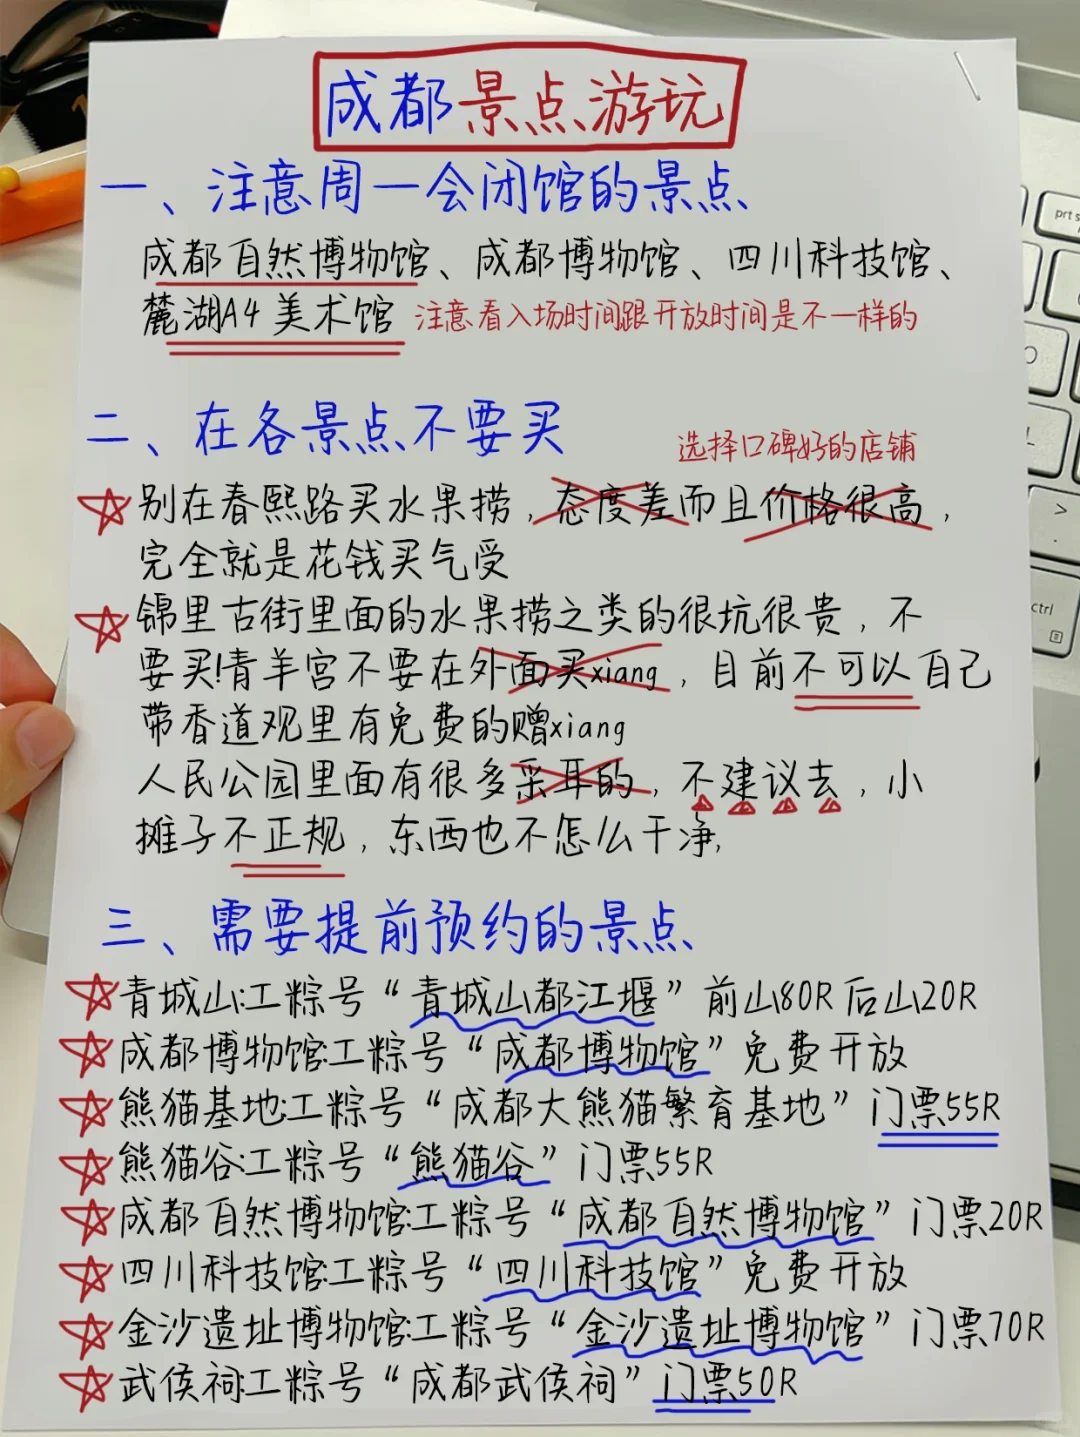 成都景点游玩
一、注意周一会闭馆的景点
成都自然博物馆、成都博物馆、四川科技馆、
麓湖A4美术馆 注意看入场时间跟开放时间是不一样的
二、在各景点不要买
选择口碑好的店铺
别在春熙路买水果捞，态度差而且价格很高，
完全就是花钱买气受
锦里古街里面的水果捞之类的很坑很贵，不
要买!青羊宫不要在外面买xiang，目前不可以自己
带香道观里有免费的赠xiang
人民公园里面有很多采耳的，不建议去，小
摊子不正规，东西也不怎么干净,
三、需要提前预约的景点
青城山:工粽号“青城山都江堰”前山80R后山20R
成都博物馆:工粽号“成都博物馆”免费开放
熊猫基地:工粽号“成都大熊猫繁育基地”门票55R
熊猫谷:工粽号“熊猫谷”门票55R
成都自然博物馆:工粽号“成都自然博物馆”门票20R
四川科技馆:工粽号“四川科技馆”免费开放
金沙遗址博物馆:工粽号“金沙遗址博物馆”门票70R
武侯祠:工粽号“成都武侯祠”门票50R
prt s
ctrl